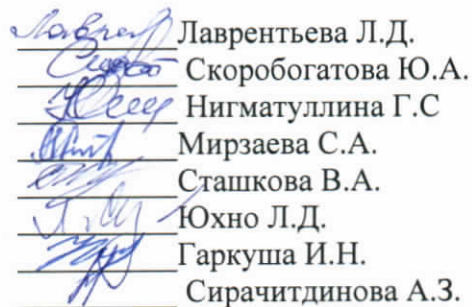 Лаврентьева Л.Д.
Скоробогатова Ю.А.
Нигматуллина Г.С
Мирзаева С.А.
Сташкова В.А.
Юхно Л.Д.
Гаркуша И.Н.
Сирачитдинова А.З.